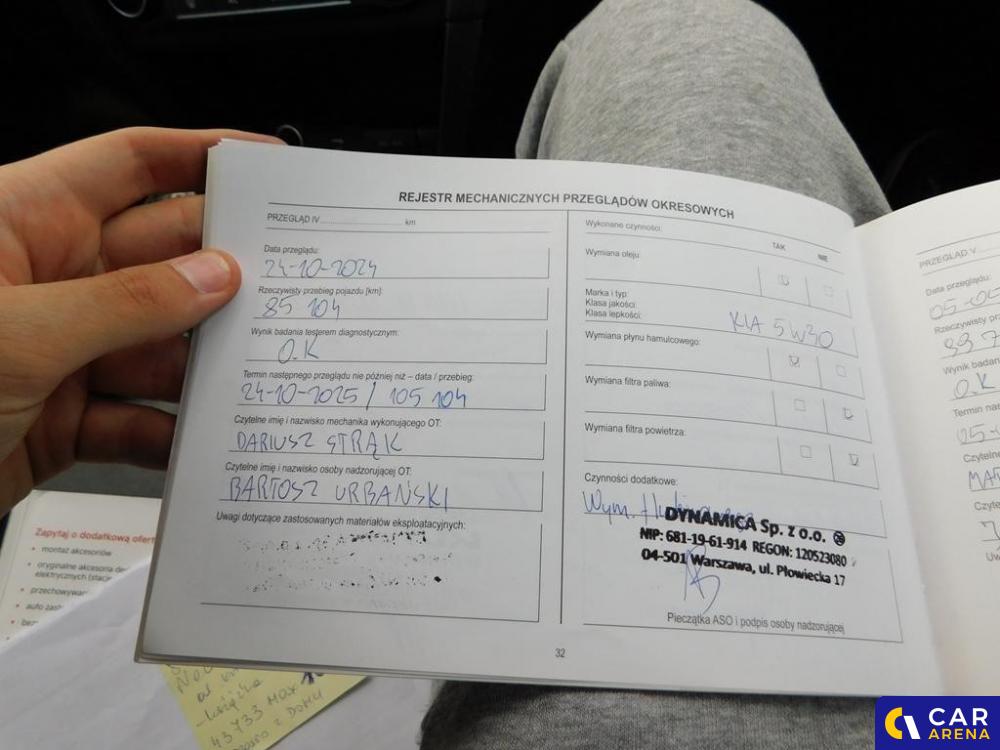 REJESTR MECHANICZNYCH PRZEGLĄDÓW OKRESOWYCH
PRZEGLĄD IV ........................ km
Data przeglądu:
24-10-2024
Rzeczywisty przebieg pojazdu [km]:
85 104
Wynik badania testerem diagnostycznym:
O.K
Termin następnego przeglądu nie później niż – data / przebieg:
24-10-2025 / 105 104
Czytelne imię i nazwisko mechanika wykonującego OT:
DARIUSZ STRĄK
Czytelne imię i nazwisko osoby nadzorującej OT:
BARTOSZ URBAŃSKI
Uwagi dotyczące zastosowanych materiałów eksploatacyjnych:
Wykonane czynności:
TAK NIE
Wymiana oleju:
Marka i typ:
Klasa jakości:
Klasa lepkości:
KIA 5W30
Wymiana płynu hamulcowego:
Wymiana filtra paliwa:
Wymiana filtra powietrza:
Czynności dodatkowe:
Wym.
DYNAMICA Sp. z o.o.
NIP: 681-19-61-914 REGON: 120523080
04-501 Warszawa, ul. Płowiecka 17
Pieczątka ASO i podpis osoby nadzorującej
32
PRZEGLĄD V
Data przeglądu:
05-05
Rzeczywisty prz
Wynik badan
O.K
Termin nast
Czyteln
MAT
Czyt
Uw
Zapytaj o dodatkową ofert
• montaż akcesoriów
• oryginalne akcesoria de
elektrycznych (stac
• przechowywan
• auto zast
• bez
książka
43733 MAX
z DOMU
CAR
ARENA